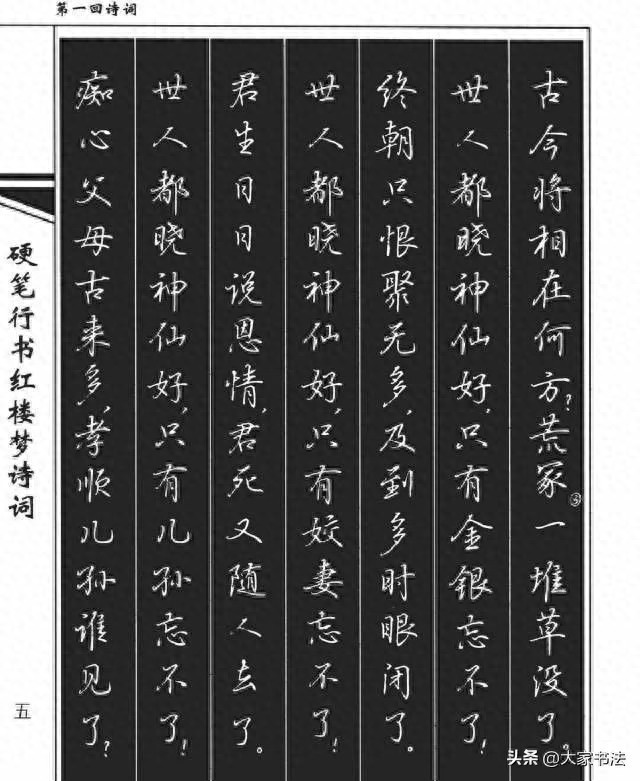 第一回诗词
古今将相在何方?荒冢③一堆草没了。
世人都晓神仙好,只有金银忘不了!
终朝只恨聚无多,及到多时眼闭了。
世人都晓神仙好,只有姣妻忘不了!
君生日日说恩情,君死又随人去了。
世人都晓神仙好,只有儿孙忘不了!
痴心父母古来多,孝顺儿孙谁见了?
硬笔行书红楼梦诗词
五
头条 @大家书法